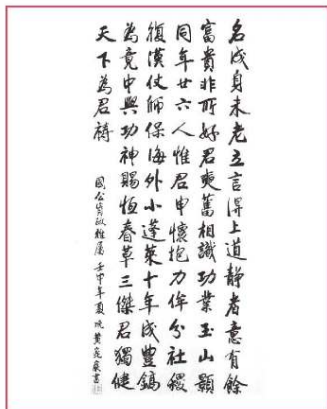 名成身未老立言得上道靜者意有餘
富貴非所好君與舊相識功業玉山顯
同年廿六人惟君申懷抱力侔分社稷
復漢仗師保海外小蓬萊十年成豐鎬
為竟中興功神賜恆春草三傑君獨健
天下為君禱
國公資政雅屬 壬申年夏晚 黃堯　書